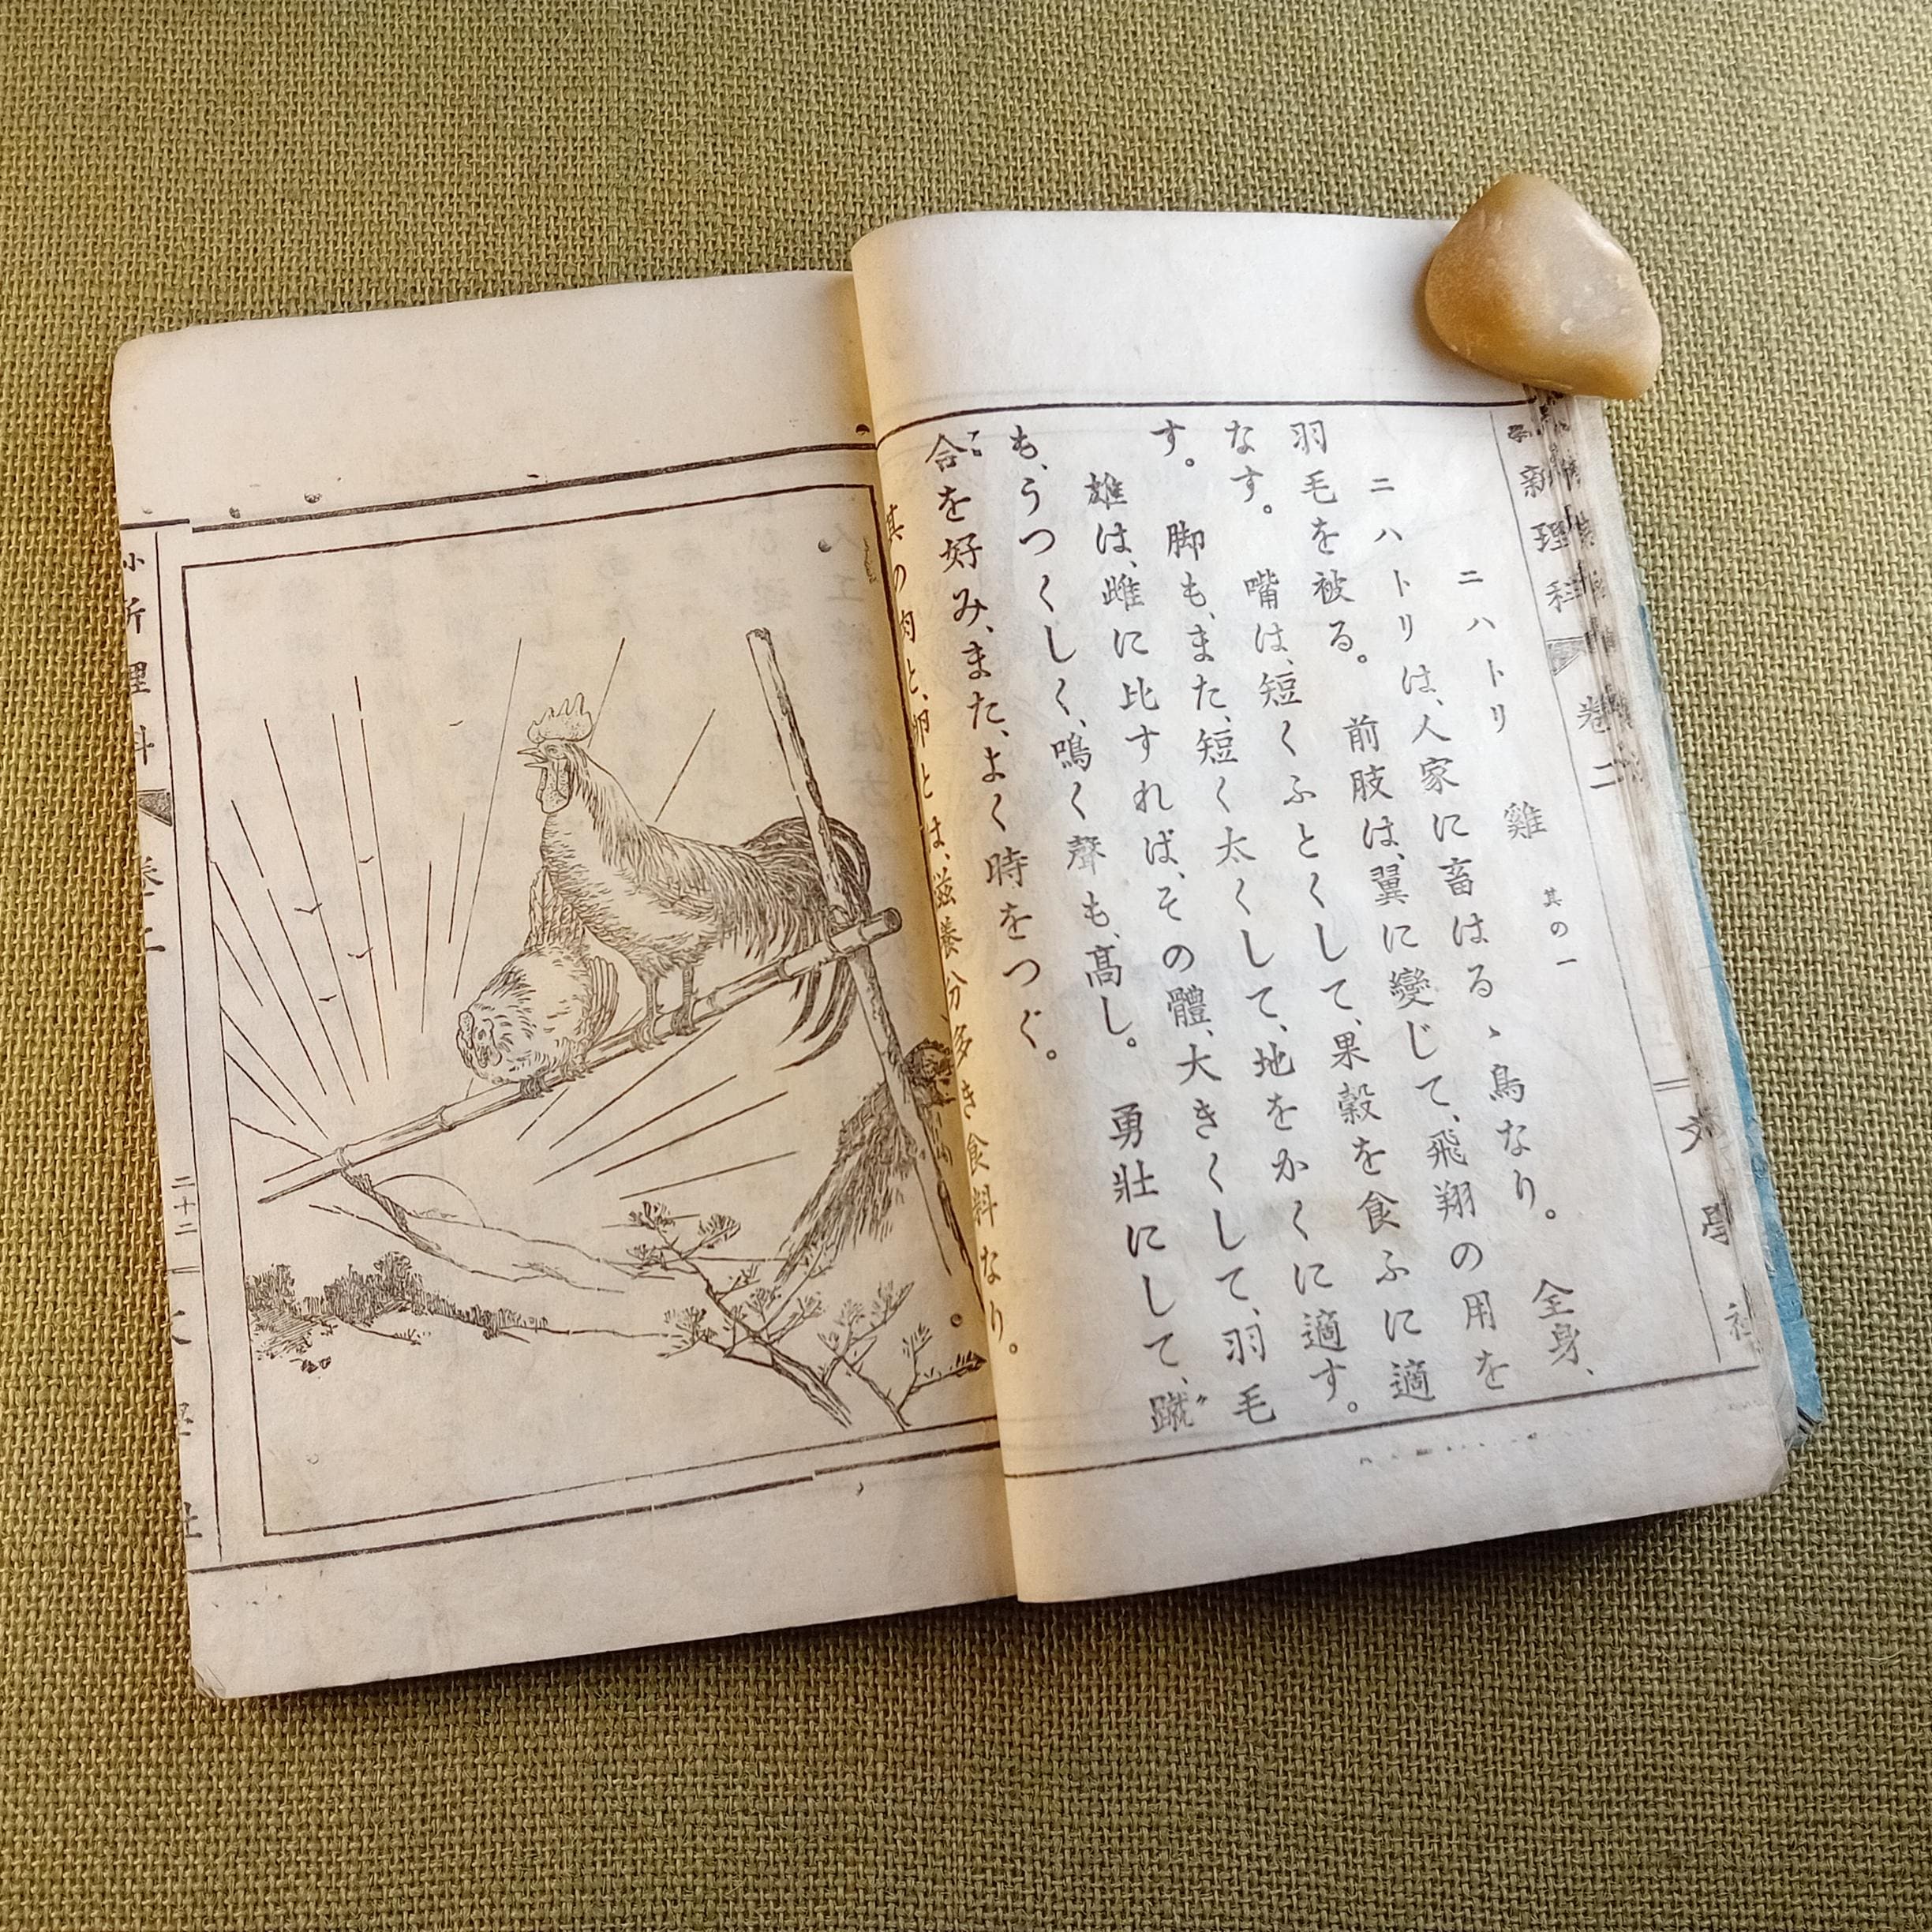 新理科
卷二
文學社
ニハトリ 雞 其の一
ニハトリは、人家に畜はるゝ鳥なり。 全身、
羽毛を被る。 前肢は、翼に變じて、飛翔の用を
なす。 嘴は、短くふとくして、果穀を食ふに適
す。 脚も、また、短く太くして、地をかくに適す。
雄は、雌に比すれば、その體、大きくして、羽毛
も、うつくしく、鳴く聲も、高し。 勇壯にして、蹴
合を好み、また、よく時をつぐ。
其の肉と、卵とは、滋養分多き食料なり。
理科
二十二